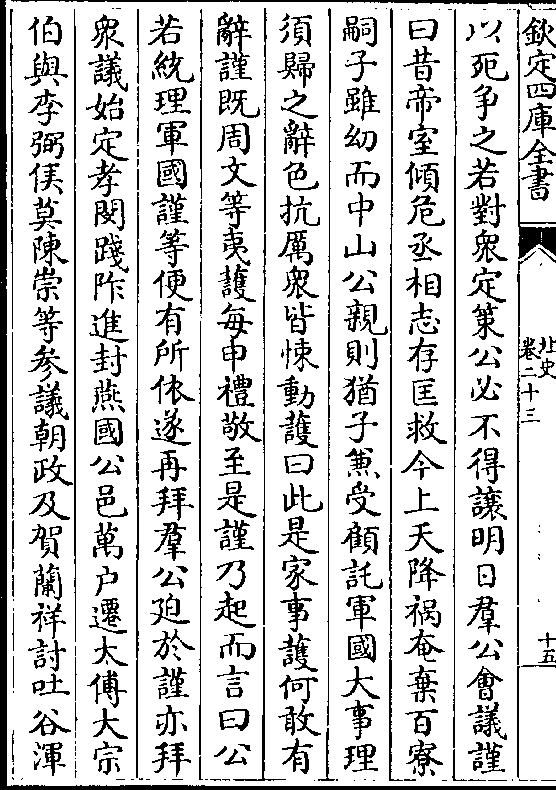 欽定四庫全書
北史
卷二十三
十五
以死争之若對衆定策公必不得讓明日羣公會議謹
曰昔帝室傾危丞相志存匡救今上天降禍奄棄百寮
嗣子雖幼而中山公親則猶子兼受顧託軍國大事理
須歸之辭色抗厲衆皆悚動護曰此是家事護何敢有
辭謹既周文等夷護每申禮敬至是謹乃起而言曰公
若統理軍國謹等便有所依遂再拜羣公廹於謹亦拜
衆議始定孝閔踐阼進封燕國公邑萬户遷太傅大宗
伯與李弼侯莫陳崇等參議朝政及賀蘭祥討吐谷渾